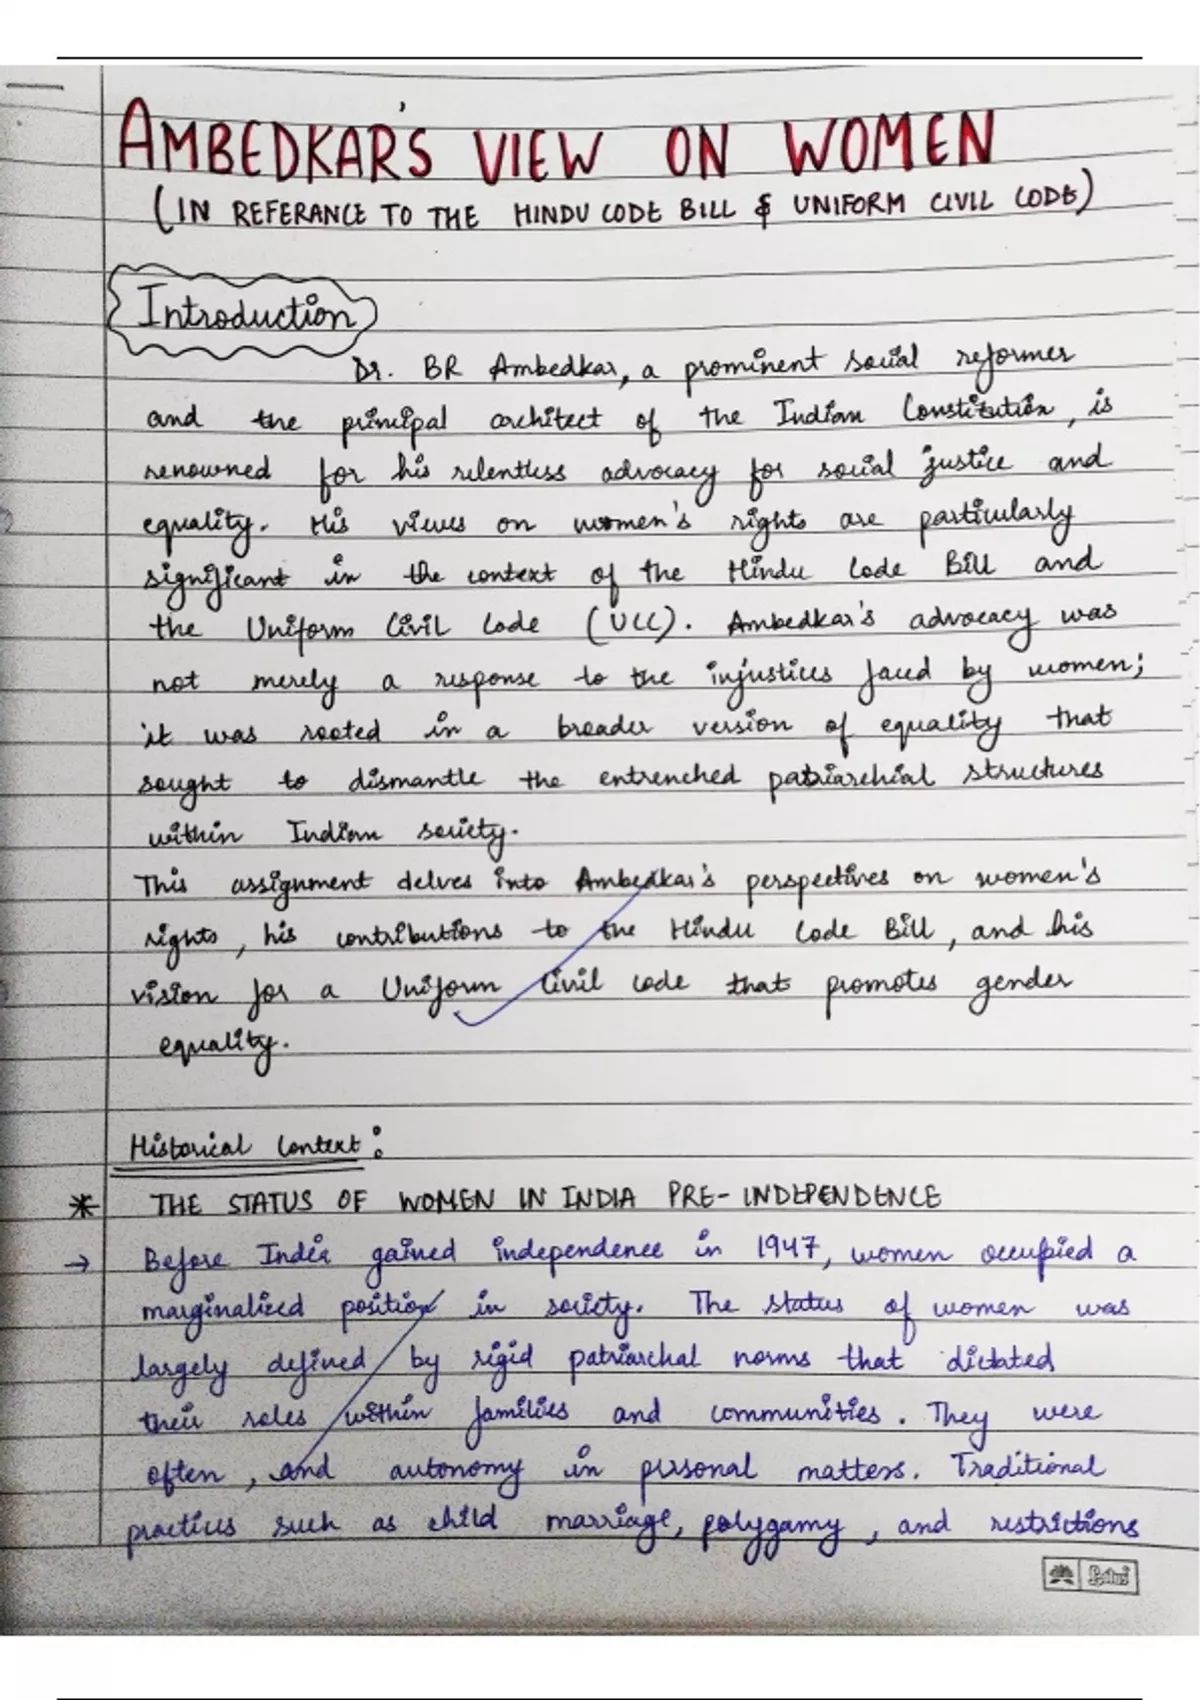 AMBEDKAR'S VIEW ON WOMEN
(IN REFERANCE TO THE HINDU CODE BILL & UNIFORM CIVIL CODE)
Introduction
Dr. BR Ambedkar, a prominent social reformer
and the principal architect of the Indian Constitution, is
renowned for his relentless advocacy for social justice and
equality. His views on women's rights are particularly
significant in the context of the Hindu Code Bill and
the Uniform Civil Code (UCC). Ambedkar's advocacy was
not merely a response to the injustices faced by women;
it was rooted in a broader version of equality that
sought to dismantle the entrenched patriarchial structures
within Indian society.
This assignment delves into Ambedkar's perspectives on women's
rights, his contributions to the Hindu Code Bill, and his
vision for a Uniform Civil code that promotes gender
equality.
Historical Context:
* THE STATUS OF WOMEN IN INDIA PRE-INDEPENDENCE
→ Before India gained independence in 1947, women occupied a
marginalized position in society. The status of women was
largely defined by rigid patriarchal norms that dictated
their roles within families and communities. They were
often, and autonomy in personal matters. Traditional
practices such as child marriage, polygamy, and restrictions
Lotus